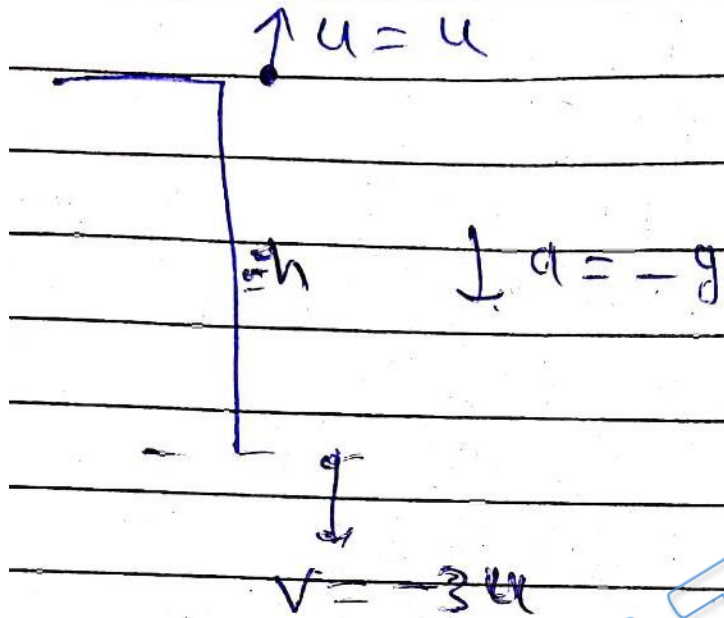 u = u
h
a = -g
V = -3u